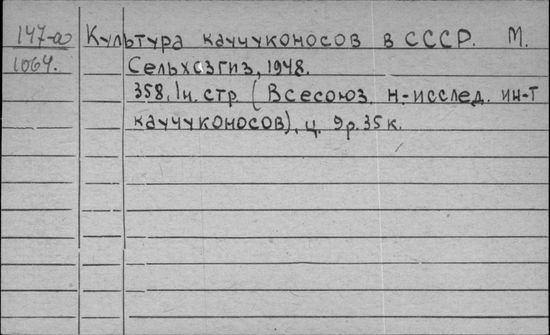 147-а Культура каучуконосов в СССР. М.
1064. Сельхозгиз, 1948.
358, 1н. стр. (Всесоюз. н.-исслед. ин-т
каучуконосов), ц. 9р. 35к.